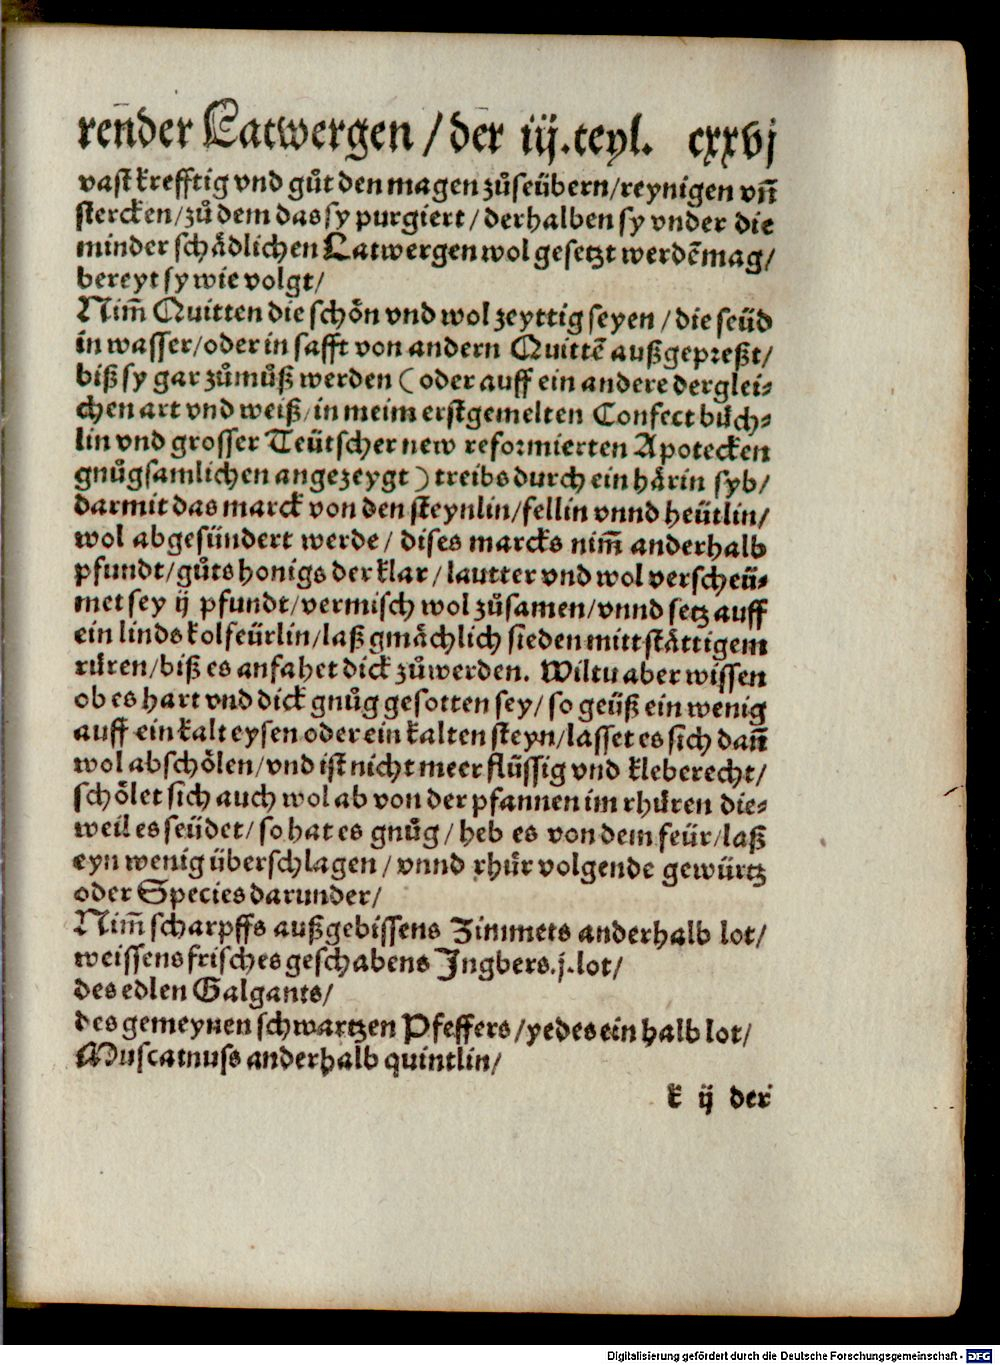 render Latwergen / der iij. teyl. cxxvj
vast krefftig vnd gůt den magen zůseübern / reynigen vñ
stercken / zů dem das sy purgiert / derhalben sy vnder die
minder schädlichen Latwergen wol gesetzt werdẽ mag /
bereyt sy wie volgt /
Nim̃ Quitten die schön vnd wol zeyttig seyen / die seüd
in wasser / oder in safft von andern Quittẽ außgepreßt /
biß sy gar zůmůß werden ( oder auff ein andere derglei⸗
chen art vnd weiß / in meim erstgemelten Confect bůch⸗
lin vnd grosser Teütscher new reformierten Apotecken
gnůgsamlichen angezeygt ) treibs durch ein härin syb /
darmit das marck von den steynlin / fellin vnnd heütlin /
wol abgesündert werde / dises marcks nim̃ anderhalb
pfundt / gůts honigs der klar / lautter vnd wol verscheü⸗
met sey ij pfundt / vermisch wol zůsamen / vnnd setz auff
ein linds kolfeürlin / laß gmächlich sieden mitt stättigem
rüren / biß es anfahet dick zůwerden. Wiltu aber wissen
ob es hart vnd dick gnůg gesotten sey / so geüß ein wenig
auff ein kalt eysen oder ein kalten steyn / lasset es sich dañ
wol abschölen / vnd ist nicht meer flüssig vnd kleberecht /
schölet sich auch wol ab von der pfannen im rhüren die⸗
weil es seüdet / so hat es gnůg / heb es von dem feür / laß
eyn wenig überschlagen / vnnd rhür volgende gewürtz
oder Species darunder /
Nim̃ scharpffs außgebissens Zimmets anderhalb lot /
weissens frisches geschabens Jngbers .j. lot /
des edlen Galgants /
des gemeynen schwartzen Pfeffers / yedes ein halb lot /
Muscatnuss anderhalb quintlin /
k ij der
Digitalisierung gefördert durch die Deutsche Forschungsgemeinschaft - DFG